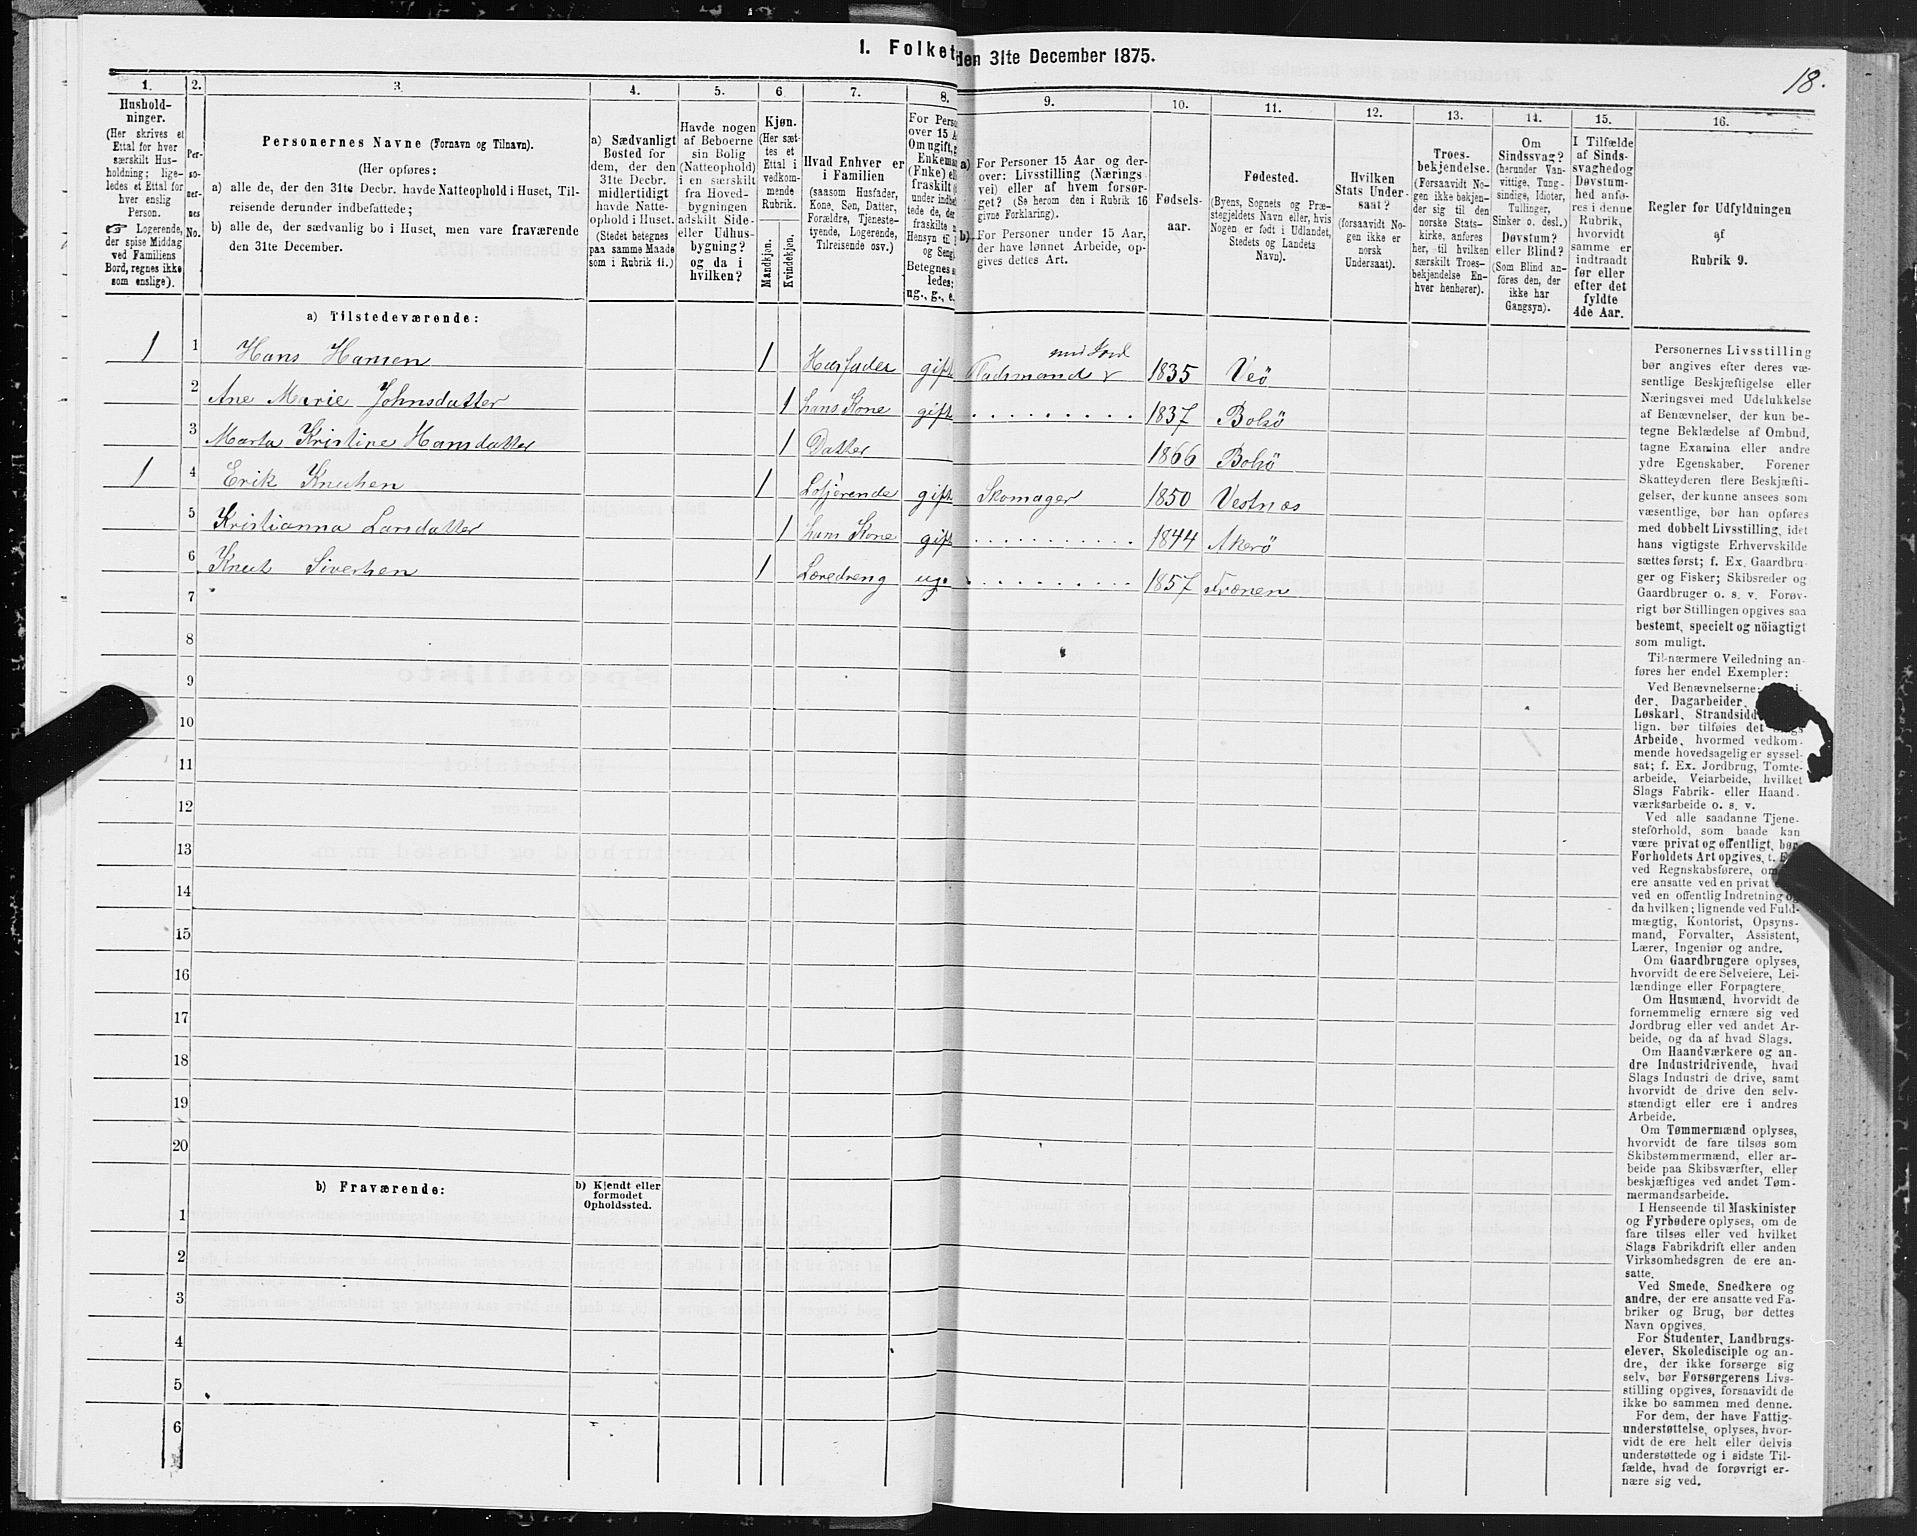 1. Folket
den 31te December 1875.
18.
1. 2. 3. 4. 5. 6 7. 8. 9. 10. 11. 12. 13. 14. 15. 16.
Hushold-
ninger.
(Her skrives et
Ettal for hver
særskilt Hus-
holdning; lige-
ledes et Ettal for
hver enslig
Person.
Logerende,
der spise Middag
ved Familiens
Bord, regnes ikke
som enslige).
Per-
so-
ner-
nes
No.
Personernes Navne (Fornavn og Tilnavn).
(Her opføres:
a) alle de, der den 31te Decbr. havde Natteophold i Huset, Til-
reisende derunder indbefattede;
b) alle de, der sædvanlig bo i Huset, men vare fraværende
den 31te December.
a) Sædvanligt
Bosted for
dem, der den
31te Decbr.
midlertidigt
havde Natte-
ophold i Huset.
(Stedet betegnes
paa samme Maade
som i Rubrik 11.)
Havde nogen
af Beboerne
sin Bolig
(Natteophold)
i en særskilt
fra Hoved-
bygningen
adskilt Side-
eller Udhus-
bygning?
og da i
hvilken?
Kjøn.
(Her sæt-
tes et
Ettal i
vedkom-
mende
Rubrik.
Mandkjøn.
Kvindekjøn.
Hvad Enhver er
i Familien
(saasom Husfader,
Kone, Søn, Datter,
Forældre, Tjeneste-
tyende, Logerende,
Tilreisende osv.)
For Perso
over 15 A
Om ugift, g
Enkeman
(Enke) el
fraskilt
under indbe
tede de, der
fraskilte
Hensyn til
og Seng
Betegnes
ledes:
ug., g., e.
a) For Personer 15 Aar og der-
over: Livsstilling (Nærings
vei) eller af hvem forsør-
get? (Se herom den i Rubrik 16
givne Forklaring).
b) For Personer under 15 Aar,
der have lønnet Arbeide, op-
gives dettes Art.
Fødsels-
aar.
Fødested.
(Byens, Sognets og Præ-
stegjeldets Navn eller, hvis
Nogen er født i Udlandet,
Stedets og Landets
Navn).
Hvilken
Stats Under-
saat?
(forsaavidt No-
gen ikke er
norsk
Undersaat).
Troes-
bekjendelse.
(Forsaavidt No-
gen ikke bekjen-
der sig til den
norske Stats-
kirke, anføres
her, til hvilken
særskilt Troes-
bekjendelse En-
hver henhører).
Om
Sindssvag?
(herunder Van-
vittige, Tung-
sindige, Idioter,
Tullinger,
Sinker o. desl.)
Døvstum?
eller Blind?
(Som Blind an-
føres den, der
ikke har
Gangsyn).
I Tilfælde
af Sinds-
svaghed og
Døvstum-
hed anfø-
res i denne
Rubrik,
hvorvidt
samme er
indtraadt
før eller
efter det
fyldte
4de Aar.
Regler for Udfyldningen
af
Rubrik 9.
a) Tilstedeværende:
1 1 Hans Hansen 1 Husfader gift Pladsmand med Jord 1835 Veö
2 Ane Marie Johnsdatter 1 hans Kone gift 1837 Bolsö
3 Marta Kristine Hansdatter 1 Datter 1866 Bolsö
1 4 Erik Knutsen 1 Losjerende gift Skomager 1850 Vestnæs
5 Kristianna Larsdatter 1 hans Kone gift 1844 Akerö
6 Knut Sivertsen 1 Læredreng ug. 1857 Frænen
7
8
9
10
11
12
13
14
15
16
17
18
19
20
b) Fraværende:
b) Kjendt eller
formodet
Opholdssted.
1
2
3
4
5
6
Personernes Livsstilling
bør angives efter deres væ-
sentlige Beskjæftigelse eller
Næringsvei med Udelukkelse
af Benævnelser, der kun be-
tegne Beklædelse af Ombud,
tagne Examina eller andre
ydre Egenskaber. Forener
Skatteyderen flere Beskjæfti-
gelser, der kunne ansees som
væsentlige, bør han opføres
med dobbelt Livsstilling, idet
hans vigtigste Erhvervskilde
sættes først; f. Ex. Gaardbru-
ger og Fisker; Skibsreder og
Gaardbruger o. s. v. Forøv-
rigt bør Stillingen opgives saa
bestemt, specielt og nöiagtigt
som muligt.
Til nærmere Veiledning an-
føres her endel Exempler:
Ved Benævnelserne:
der, Dagarbeider,
Løskarl, Strandsidd
lign. bør tilføies det Slags
Arbeide, hvormed vedkom-
mende hovedsagelig er syssel-
sat; f. Ex. Jordbrug, Tomte-
arbeide, Veiarbeide, hvilket
Slags Fabrik- eller Haand-
værksarbeide o. s. v.
Ved alle saadanne Tjene-
steforhold, som baade kan
være privat og offentligt, bør
Forholdets Art opgives, f. E
ved Regnskabsførere, om
ere ansatte ved en privat
ved en offentlig Indretning og
da hvilken; lignende ved Fuld-
mægtig, Kontorist, Opsyns-
mand, Forvalter, Assistent,
Lærer, Ingeniør og andre.
Om Gaardbrugere oplyses,
hvorvidt de ere Selveiere, Lei-
lændinge eller Forpagtere.
Om Husmænd, hvorvidt de
fornemmelig ernære sig ved
Jordbrug eller ved andet Ar-
beide, og da af hvad Slags.
Om Haandværkere og an-
dre Industridrivende, hvad
Slags Industri de drive, samt
hvorvidt de drive den selv-
stændigt eller ere i andres
Arbeide.
Om Tømmermænd oplyses,
hvorvidt de fare tilsøs som
Skibstømmermænd, eller ar-
beide paa Skibsværfter, eller
beskjæftiges ved andet Tøm-
mermandsarbeide.
I Henseende til Maskinister
og Fyrbødere oplyses, om de
fare tilsøs eller ved hvilket
Slags Fabrikdrift eller anden
Virksomhedsgren de ere an-
satte.
Ved Smede, Snedkere og
andre, der ere ansatte ved Fa-
briker og Brug, bør dettes
Navn opgives.
For Studenter, Landbrugs-
elever, Skoledisciple og an-
dre, der ikke forsørge sig
selv, bør Forsørgerens Livs-
stilling opgives, forsaavidt de
ikke bo sammen med denne.
For dem, der have Fattig-
understøttelse, oplyses, hvor-
vidt de ere helt eller delvis
understøttede og i sidste Til-
fælde, hvad de forøvrigt er-
nære sig ved.